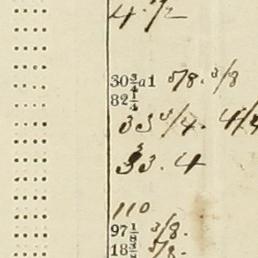 4. 1/2
30¾a1 5/8. 3/8
82¼
33 3/4. 4/4
33. 4
110
97⅛ 3/8.
18¾ 5/8.